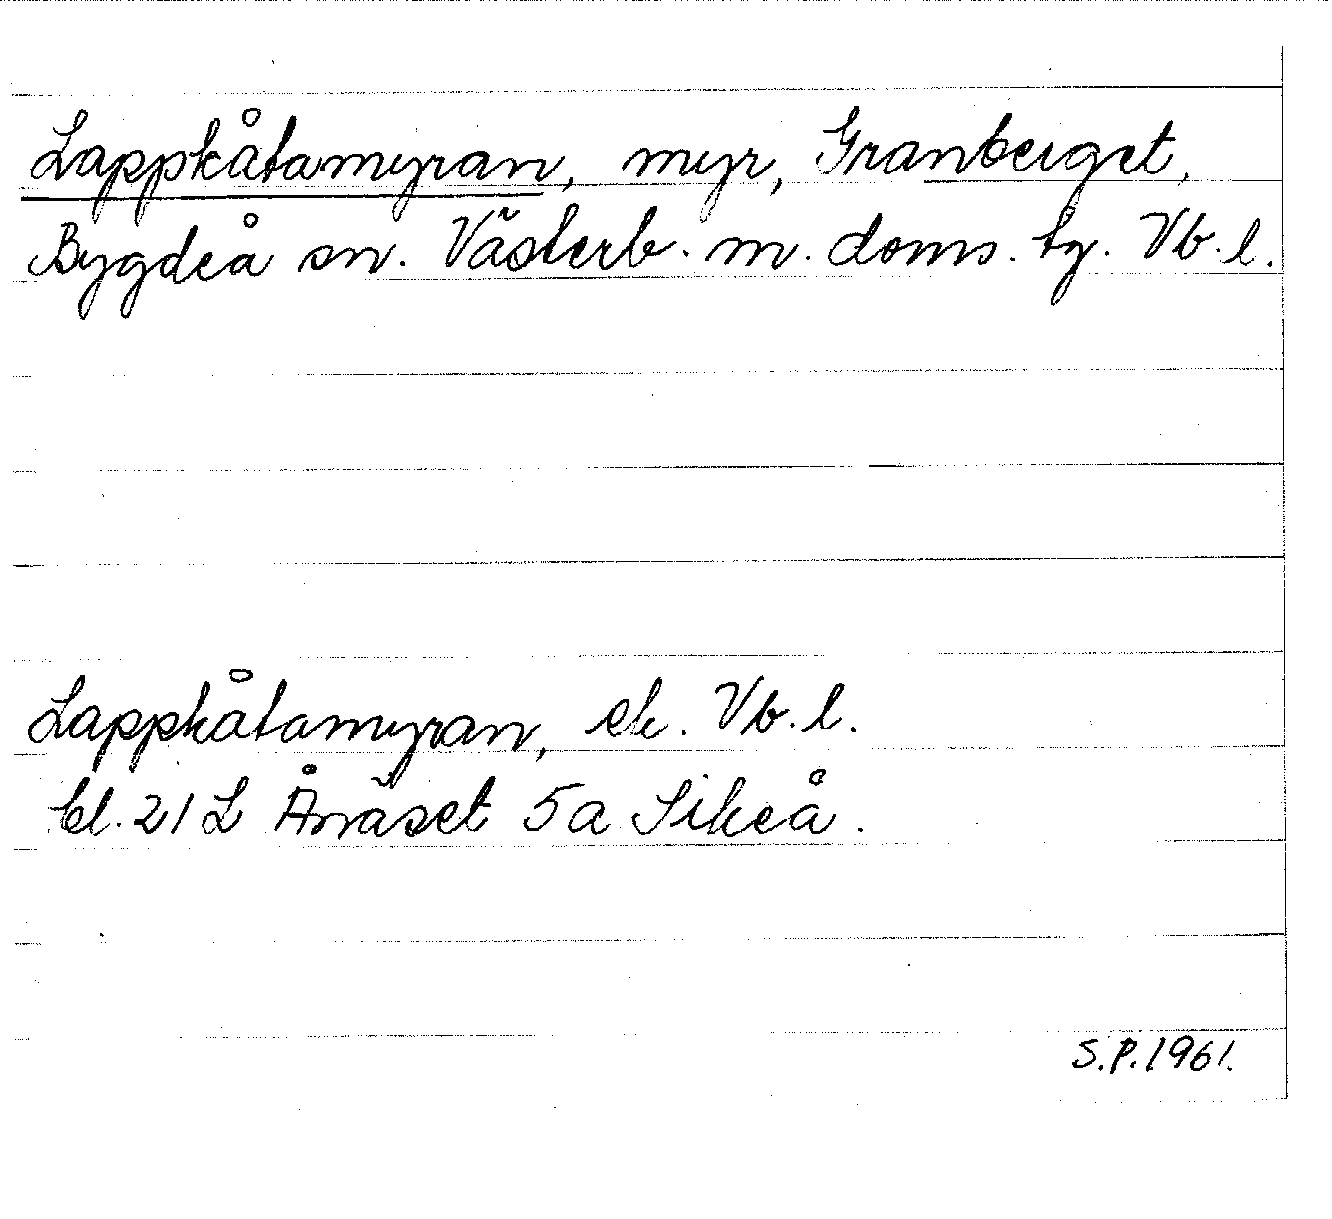 Lappkåtamyran, myr, Granberget,
Bygdeå sn. Västerb. m. doms. tg. Vb. l.
Lappkåtamyran, ek. Vb. l.
bl. 21 L Ånäset 5a Sikeå.
S.P. 1961.